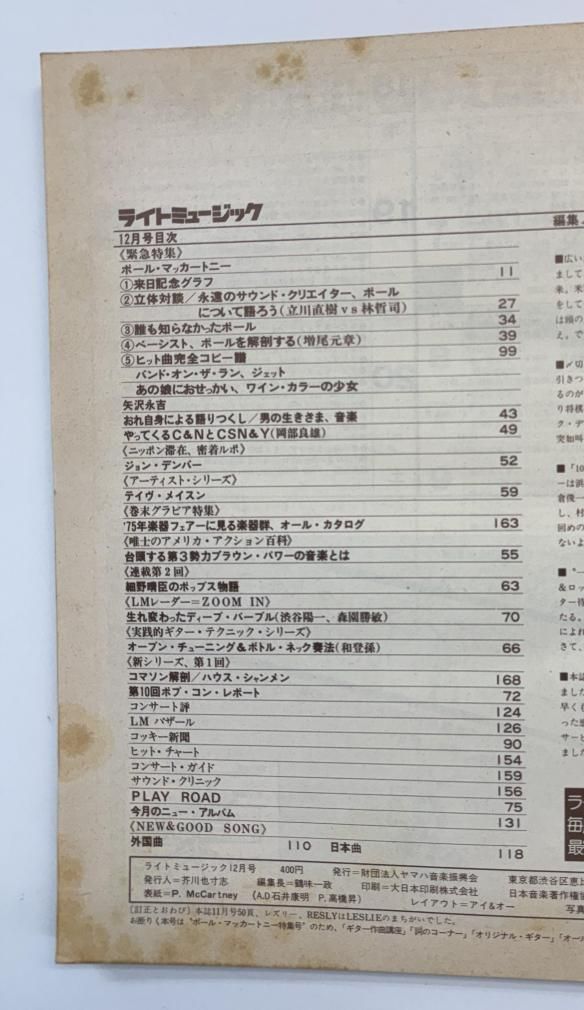 ライトミュージック
12月号目次
《緊急特集》
ポール・マッカートニー
①来日記念グラフ 11
②立体対談／永遠のサウンド・クリエイター、ポール
について語ろう(立川直樹vs林哲司) 27
③誰も知らなかったポール 34
④ベーシスト、ポールを解剖する(増尾元章) 39
⑤ヒット曲完全コピー譜 99
バンド・オン・ザ・ラン、ジェット
あの娘におせっかい、ワイン・カラーの少女
矢沢永吉
おれ自身による語りつくし／男の生きさま、音楽 43
やってくるC&NとCSN&Y(岡部良雄) 49
《ニッポン滞在、密着ルポ》
ジョン・デンバー 52
《アーティスト・シリーズ》
デイヴ・メイスン 59
《巻末グラビア特集》
'75年楽器フェアーに見る楽器群、オール・カタログ 163
《唯士のアメリカ・アクション百科》
台頭する第3勢力ブラウン・パワーの音楽とは 55
《連載第2回》
細野晴臣のポップス物語 63
《LMレーダー=ZOOM IN》
生れ変わったディープ・パープル(渋谷陽一、森園勝敏) 70
《実践的ギター・テクニック・シリーズ》
オープン・チューニング&ボトル・ネック奏法(和登孫) 66
《新シリーズ、第1回》
コマソン解剖／ハウス・シャンメン 168
第10回ポプ・コン・レポート 72
コンサート評 124
LM バザール 126
コッキー新聞 90
ヒット・チャート 154
コンサート・ガイド 159
サウンド・クリニック 156
PLAY ROAD 75
今月のニュー・アルバム 131
《NEW&GOOD SONG》
外国曲 110 日本曲 118
ライトミュージック12月号 400円 発行=財団法人ヤマハ音楽振興会 東京都渋谷区恵比
発行人=芥川也寸志 編集長=鶴味一政 印刷=大日本印刷株式会社 日本音楽著作権協
表紙=P. McCartney (A.D石井康明 P.高橋昇) レイアウト=アイ&オー 写真
〔訂正とおわび〕本誌11月号50頁、レズリー、RESLYはLESLIEのまちがいでした。
お断り〈本号は"ポール・マッカートニー特集号"のため、「ギター作曲講座」「詞のコーナー」「オリジナル・ギター」「オー
編集
■広い
まして
米。米
をして
は頭の
え。で
■〆切
引きつ
るのが
り将棋
ク・デ
突如叫
■「10
ーは浜
倉俊一
し、村
回めの
ないよ
■"一
&ロッ
ター待
たる。
によれ
さて、
■本誌
ました
早くも
った感
サービ
ました
ラ
毎
最